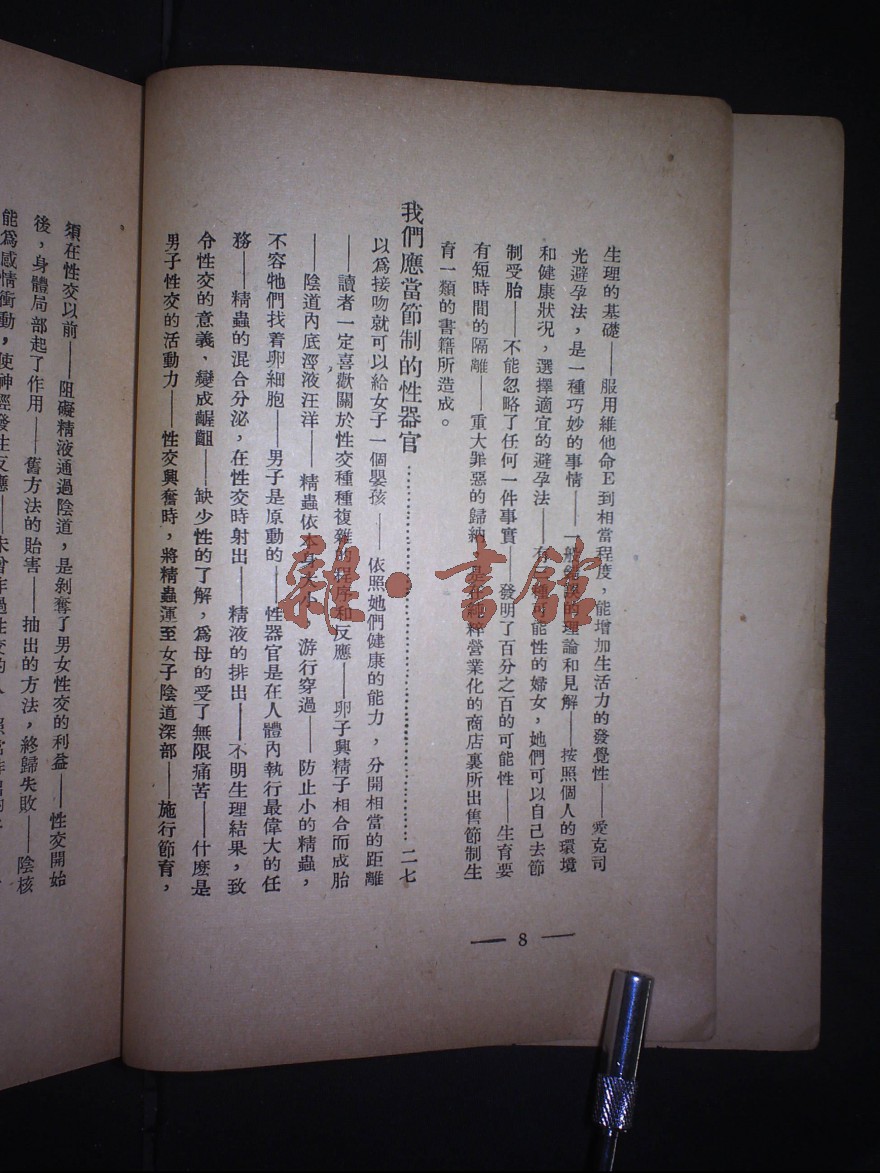 生理的基礎——服用維他命E到相當程度，能增加生活力的發覺性——愛克司
光避孕法，是一種巧妙的事情——一般錯誤的理論和見解——按照個人的環境
和健康狀況，選擇適宜的避孕法——有 種可能性的婦女，她們可以自己去節
制受胎——不能忽略了任何一件事實——發明了百分之百的可能性——生育要
有短時間的隔離——重大罪惡的歸納，是在純粹營業化的商店裏所出售節制生
育一類的書籍所造成。
我們應當節制的性器官……………………………………二一七
以爲接吻就可以給女子一個嬰孩——依照她們健康的能力，分開相當的距離
——讀者一定喜歡關於性交種種複雜的程序和反應——卵子與精子相合而成胎
——陰道內底淫液汪洋——精蟲依本身大小 游行穿過——防止小的精蟲，
不容牠們找着卵細胞——男子是原動的——性器官是在人體內執行最偉大的任
務——精蟲的混合分泌，在性交時射出——精液的排出——不明生理結果，致
令性交的意義，變成齷齪——缺少性的了解，爲母的受了無限痛苦——什麽是
男子性交的活動力——性交興奮時，將精蟲運至女子陰道深部——施行節育，
— 8 —
須在性交以前——阻礙精液通過陰道，是剝奪了男女性交的利益——性交開始
後，身體局部起了作用——舊方法的貽害——抽出的方法，終歸失敗——陰核
能爲感情衝動，使神經發生反應——未曾作過性交的人
雜·書館